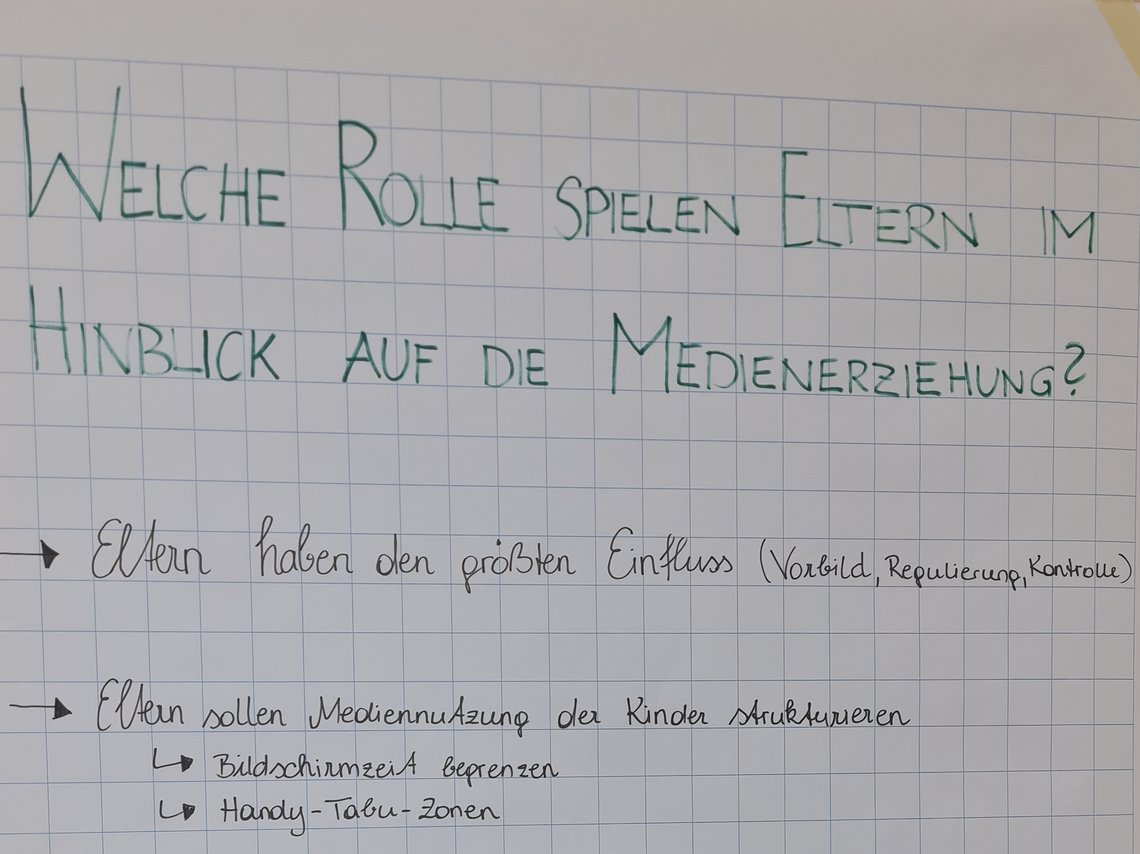 WELCHE ROLLE SPIELEN ELTERN IM
HINBLICK AUF DIE MEDIENERZIEHUNG?
→ Eltern haben den größten Einfluss (Vorbild, Regulierung, Kontrolle)
→ Eltern sollen Mediennutzung der Kinder strukturieren
↳ Bildschirmzeit begrenzen
↳ Handy-Tabu-Zonen